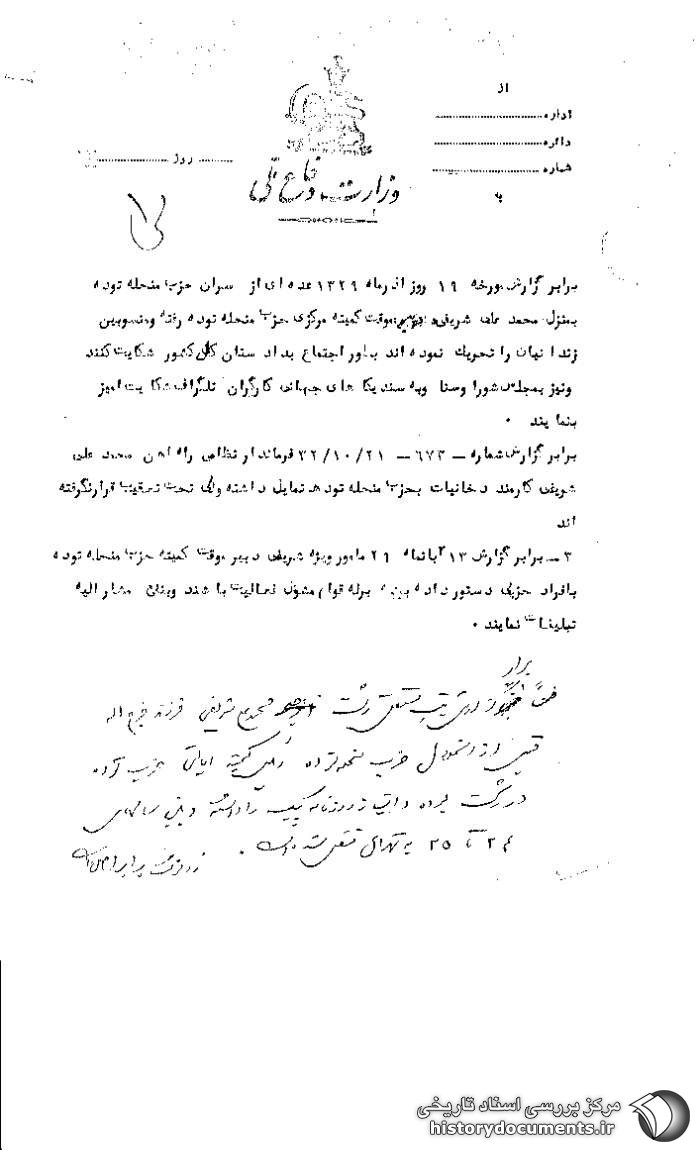 از
اداره
دائره
شماره
روز
به
وزارت دفاع ملی
برابر گزارش مورخه ۱۹ روز اذرماه ۱۳۲۹ عده ای از سران حزب منحله توده
بمنزل محمد علی شریفی دبیر موقت کمیته مرکزی حزب منحله توده رفته ومنسوبین
زندانیان را تحریک نموده اند بطور اجتماع بداد ستان کل کشور شکایت کنند
ونیز بمجلس شورا وسنا وبه سندیکا های جهانی کارگران تلگراف شکایت امیز
بنمایند ۰
برابر گزارش شماره ــ ۶۷۳ ــ ۳۲/۱۰/۲۱ فرماندار نظامی راه اهن محمد علی
شریفی کارمند دخانیات بحزب منحله توده تمایل داشته ولی تحت تعقیب قرارنگرفته
اند
۳ــ برابر گزارش ۱۳ آبانماه ۲۹ مامور ویژه شریفی دبیر موقت کمیته حزب منحله توده
بافراد حزبی دستور داده برله قوام مشغول فعالیت باشند وبنفع مشار الیه
تبلیغات نمایند ۰
برابر
ضمناً تیپ مستقل رشت شریفی فرزند فرج اله
حزب منحله توده کمیته ایالتی حزب توده
در رشت بوده و روزنامه را داشته و بین سالهای
۲۴ تا ۲۵ به تهران منتقل شده است ۰
مرکز بررسی اسناد تاریخی
historydocuments.ir